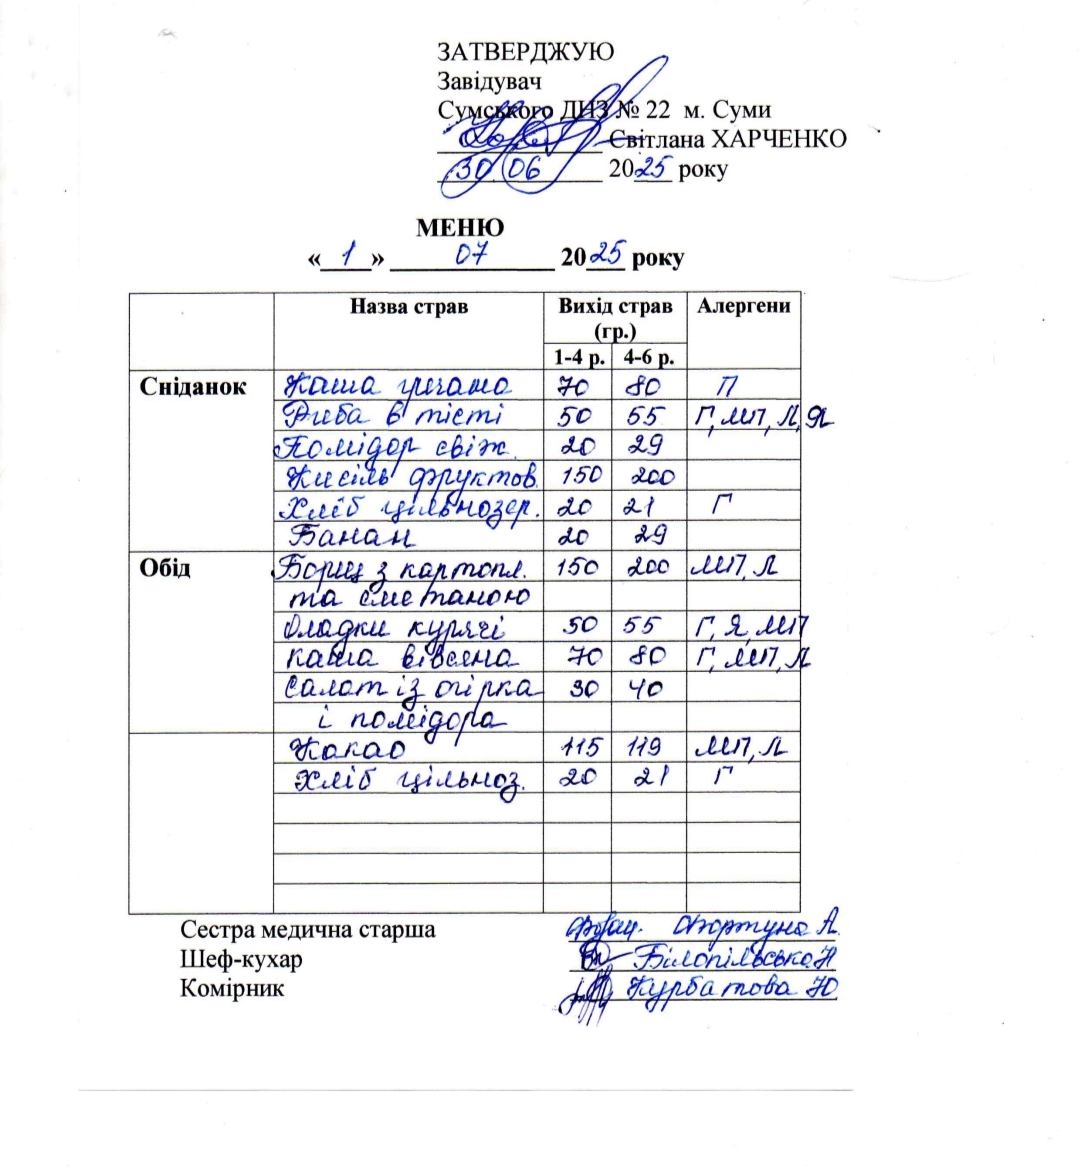 ЗАТВЕРДЖУЮ
Завідувач
Сумського ДНЗ № 22 м. Суми
Світлана ХАРЧЕНКО
30 06 2025 року
МЕНЮ
« 1 » 07 2025 року
Назва страв Вихід страв (гр.) Алергени
1-4 р. 4-6 р.
Сніданок Каша гречана 70 80 П
Риба в тісті 50 55 Г, МП, Л, Я
Помідор свіж. 20 29
Кисіль фруктов. 150 200
Хліб цільнозер. 20 21 Г
Банан 20 29
Обід Борщ з картопл. 150 200 МП, Л
та сметаною
Оладки курячі 50 55 Г, Я, МП
Каша вівсяна 70 80 Г, МП, Л
Салат із огірка 30 40
і помідора
Какао 115 119 МП, Л
Хліб цільноз. 20 21 Г
Сестра медична старша Фортуна А.
Шеф-кухар Білопільська Н
Комірник Курбатова Ю